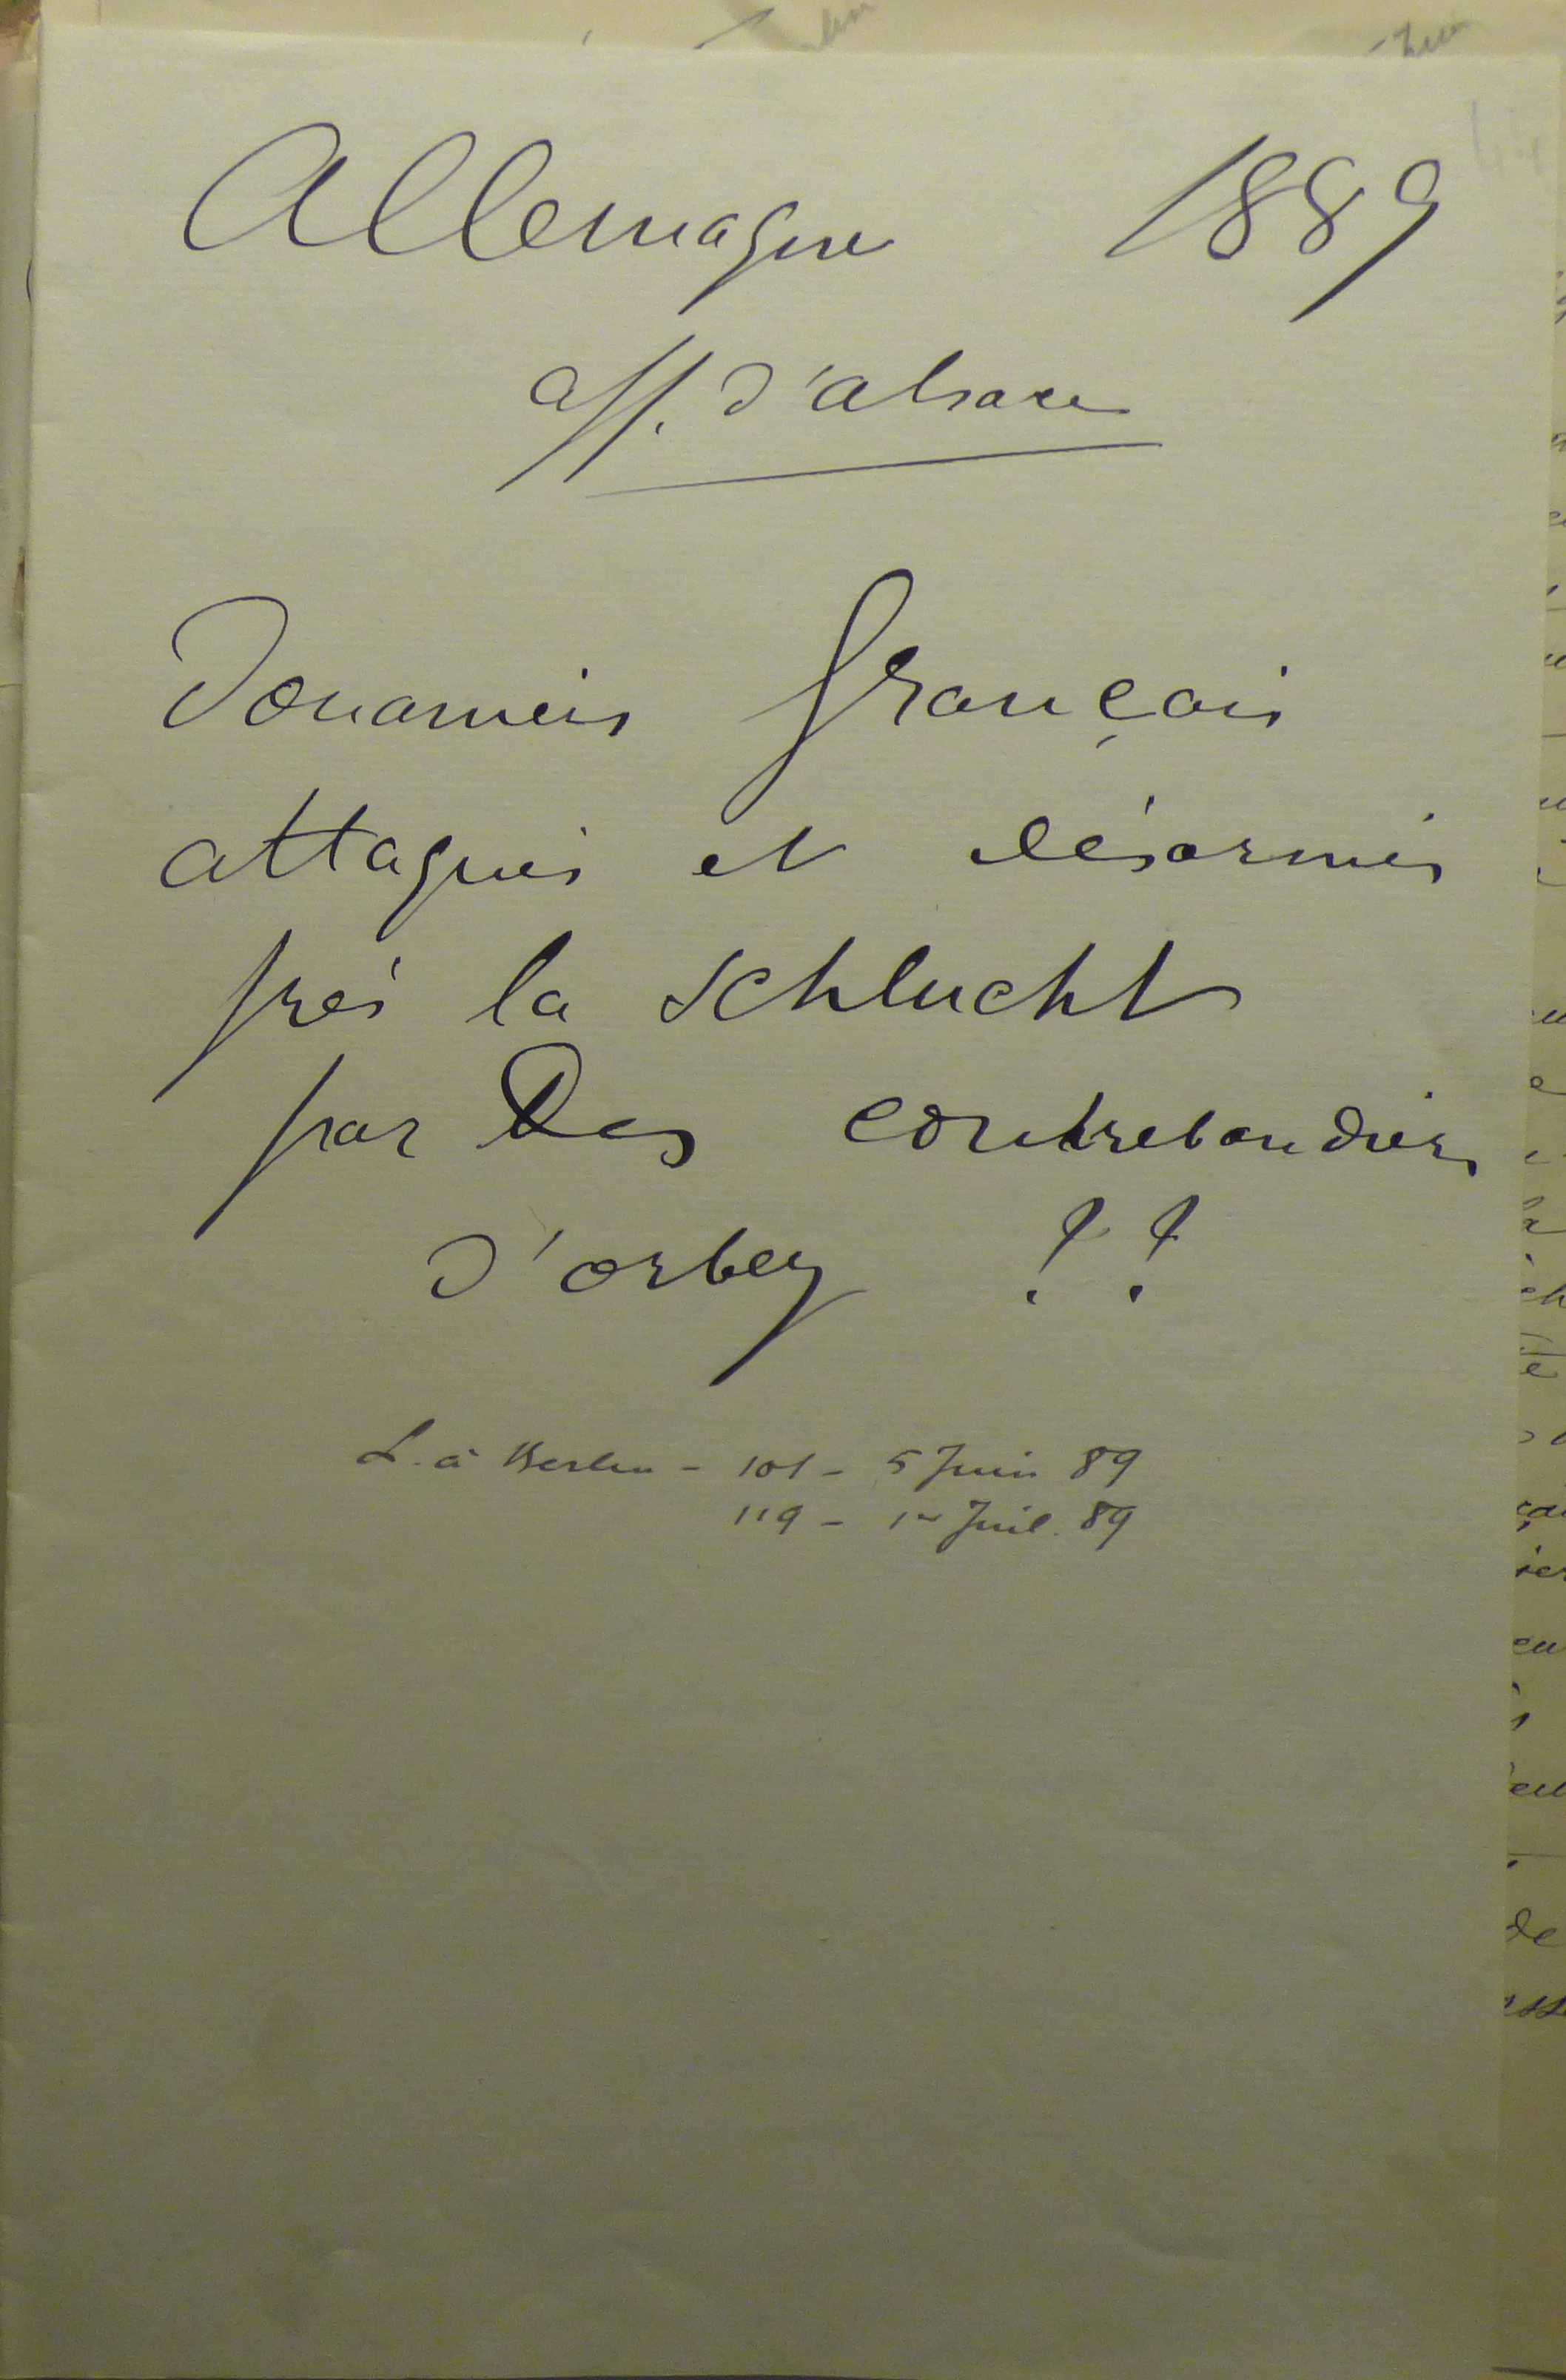 Allemagne 1889
aff. d'alsace
Douaniers français
attaqués et désarmés
près la Schlucht
par Des contrebandiers
d'orbey !!
L. à Berlin - 101 - 5 Juin 89
119 - 1er Juil. 89